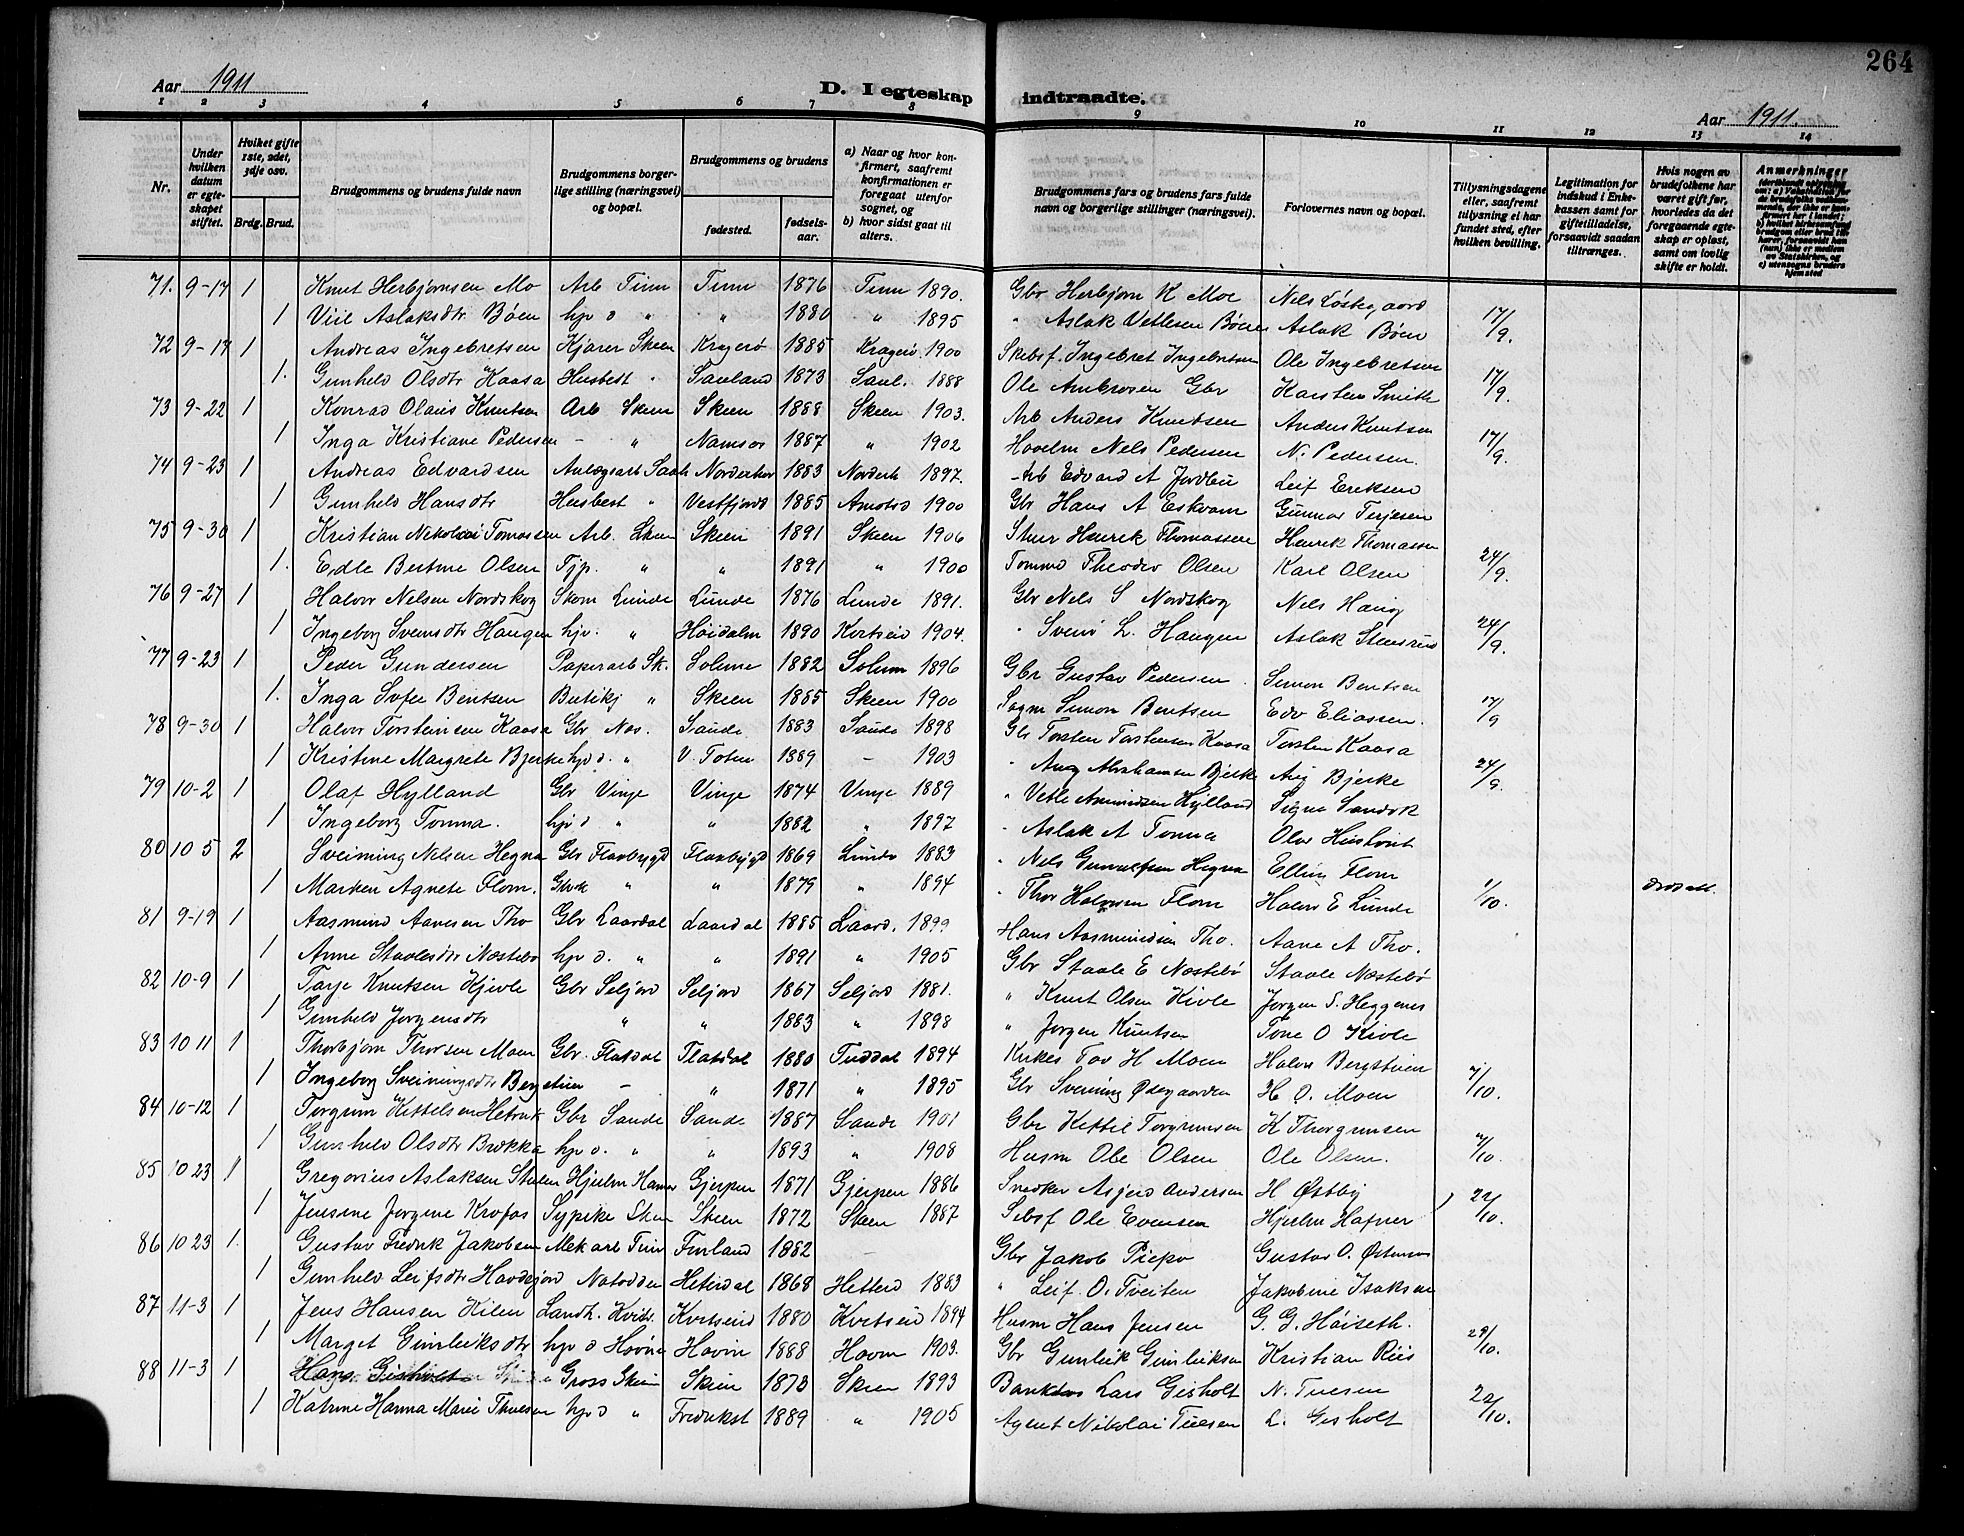 264
Aar 1911
D. I egteskap indtraadte.
Aar 1911.
1 2 3 4 5 6 7 8 9 10 11 12 13 14
Nr.
Under hvilken datum er egteskapet stiftet.
Hvilket gifte 1ste, 2det, 3dje osv.
Brdg. Brud.
Brudgommens og brudens fulde navn
Brudgommens borgerlige stilling (næringsvei) og bopæl.
Brudgommens og brudens
fødested. fødselsaar.
a) Naar og hvor konfirmert, saafremt konfirmationen er foregaat utenfor sognet, og
b) hvor sidst gaat til alters.
Brudgommens fars og brudens fars fulde navn og borgerlige stillinger (næringsvei).
Forlovernes navn og bopæl.
Tillysningsdagene eller, saafremt tillysning ei har fundet sted, efter hvilken bevilling.
Legitimation for indskud i Enkekassen samt for giftetilladelse, forsaavidt saadan tiltrænges.
Hvis nogen av brudefolkene har været gift før, hvorledes da det foregaaende egteskap er opløst, samt om lovlig skifte er holdt.
Anmerkninger
71. 9-17 1 Knut Herbjørnsen Mo Arb Tinn Tinn 1876 Tinn 1890. Gbr Herbjørn K Moe Nels Løstegaard 17/9.
1 Viil Aslaksdtr Bøen hjp d " " 1880 " 1895 " Aslak Vetlesen Bøen Aslak Bøen
72 9-17 1 Andreas Ingebretsen Kjører Skeen Kragerø 1885 Kragerø 1900 Skibsf. Ingebret Ingebretsen Ole Ingebretsen 17/9.
1. Gunhild Olsdtr Kaasa Husbest " Sauland 1873 Saul. 1888 Ole Ambrosen Gbr Karsten Smith
73 9-22 1 Konrad Olaus Knutsen Arb Skeen Skeen 1888 Skeen 1903. Arb Anders Knudsen Anders Knutsen 17/9.
1 Inga Kristiane Pedersen - " Namsos 1887 " 1902 Høvelm Nels Pedersen N. Pedersen.
74 9-23 1 Andreas Edvardsen Anlægsarb Saul Norderhov 1883 Norderh 1897. Arb Edvard A Jordbu Leif Eriksen
1 Gunhild Hansdtr Husbest " Vestfjord 1885 Amotsd 1900 Gbr Hans A Eskvam Gunnar Terjesen
75 9-30 1 Kristian Nikolai Tomassen Arb. Skeen Skeen 1891 Skeen 1906 Stuer Henrik Thomassen Henrik Thomassen 24/9.
1. Edle Bertine Olsen Fjp. " " 1891 " 1900 Tømmd Theodor Olsen Karl Olsen
76 9-27 1 Halvor Nelsen Nordskog Skom Lunde Lunde 1876 Lunde 1891. Gbr Nels S Nordskog Nels Haug 24/9.
1 Ingeborg Svensdtr Haugen hjp. " Høidalm 1890 Kvitseid 1904. " Svend L. Haugen Aslak Steensrud
77 9-23 1 Peder Gundersen Papirarb Sk. Solum 1882 Solum 1896 Gbr Gustav Pedersen Simon Bentsen 17/9
1. Inga Sofie Bentsen Butikj " Skeen 1885 Skeen 1900 Sagm Simon Bentsen Edv Eliassen.
78 9-30 1 Halvor Torsteinsen Kaasa Gbr Nes. Saude 1883 Saude 1898 Gbr Torsten Torstensen Kaasa Torsten Kaasa 24/9.
1 Kristine Margrete Bjerke hjp d. " V. Toten 1889 - 1903 " Aug Abrahamsen Bjerke Aug Bjerke
79 10-2 1 Olaf Hylland Gbr Vinje Vinje 1874 Vinje 1889 " Vetle Asmundsen Hylland Signe Sandok
1 Ingeborg Tonna. hjp d " " 1882 " 1897 " Aslak A Tonna Olav Huskvit
80 10 5 2 Sveinung Nelsen Hegna Gbr Flaabygd Flaabygd 1869 Lunde 1883 " Nels Gunnulfsen Hegna Elling Flom 1/10.
1 Marken Agnete Flom. Gbrdt " " 1879 " 1894 " Thor Halvorsen Flom Halvor E Lunde
81 9-19 1 Aasmund Aanesen Tho Gbr Laardal Laardal 1885 Laard. 1899 Hans Aasmundsen Tho. Aane A Tho.
1 Anne Staalesdtr Næstebø hjp d. " " 1891 " 1905 Gbr Staale E Næstebø Staale Næstebø
82 10-9 1 Tarje Knutsen Kjivle Gbr Seljord Seljord 1867 Seljord 1881. " Knut Olsen Kivle Jørgen S. Heggenes
1 Gunhild Jørgensdtr " " 1883 " 1898 " Jørgen Knutsen Tone O Kivle
83 10 11 1 Thorbjørn Thorsen Moen Gbr. Flatdal Flatdal 1880 Tuddal 1894 Kirkes Tov H Moen Halvor Bergstuen 1/10.
1 Ingeborg Sveinungsdtr Bergstuen - " 1871 " 1895 Gbr Sveinung Ødegaarden H O. Moen
84 10-12 1 Torgrim Kittelsen Hetvik Gbr Sande Sande 1887 Sande 1901 Gbr Kittil Torgrimsen K Thorgrimsen
1 Gunhild Olsdtr Brekka hjp d. " " 1893 " 1908 Husm Ole Olsen Ole Olsen.
85 10 23 1 Gregorius Aslaksen Stulen Hjulm Gjerpen 1871 Gjerpen 1886 Snedker Asgerd Andersen H Østby 22/10.
1 Jensine Jørgine Krofos Sypike Skeen Skeen 1872 Skeen 1887 Sebsf Ole Evensen Hjulm Hafner
86 10 23 1. Gustav Fredrik Jakobsen Mek arb Tinn Finland 1882 - Gbr Jakob Piepo Gustav O. Østensen
1 Gunhild Leifsdtr Havdesjord Natodden Heterdal 1868 Hetterd 1883 " Leif O. Tveiten Jakobine Isaksen
87 11-3 1 Jens Hansen Kilen Landh. Kvits. Kvitseid 1880 Kvitseid 1894 Husm Hans Jensen G. G. Høiseth. 29/10.
1 Marget Gunleiksdtr hjp d Hovin Hovin 1888 Hovin 1903. Gbr Gunleik Gunleiksen Kristian Riis
88 11-3 1 Hans Gisholt Gross Skien Skien 1873 Skien 1893 Lars Gisholt N. Tuesen 22/10.
1 Katrine Hanna Marie Thuesen hjp d " Fredrikst 1889 " 1905 Agent Nikolai Tuesen L. Gisholt